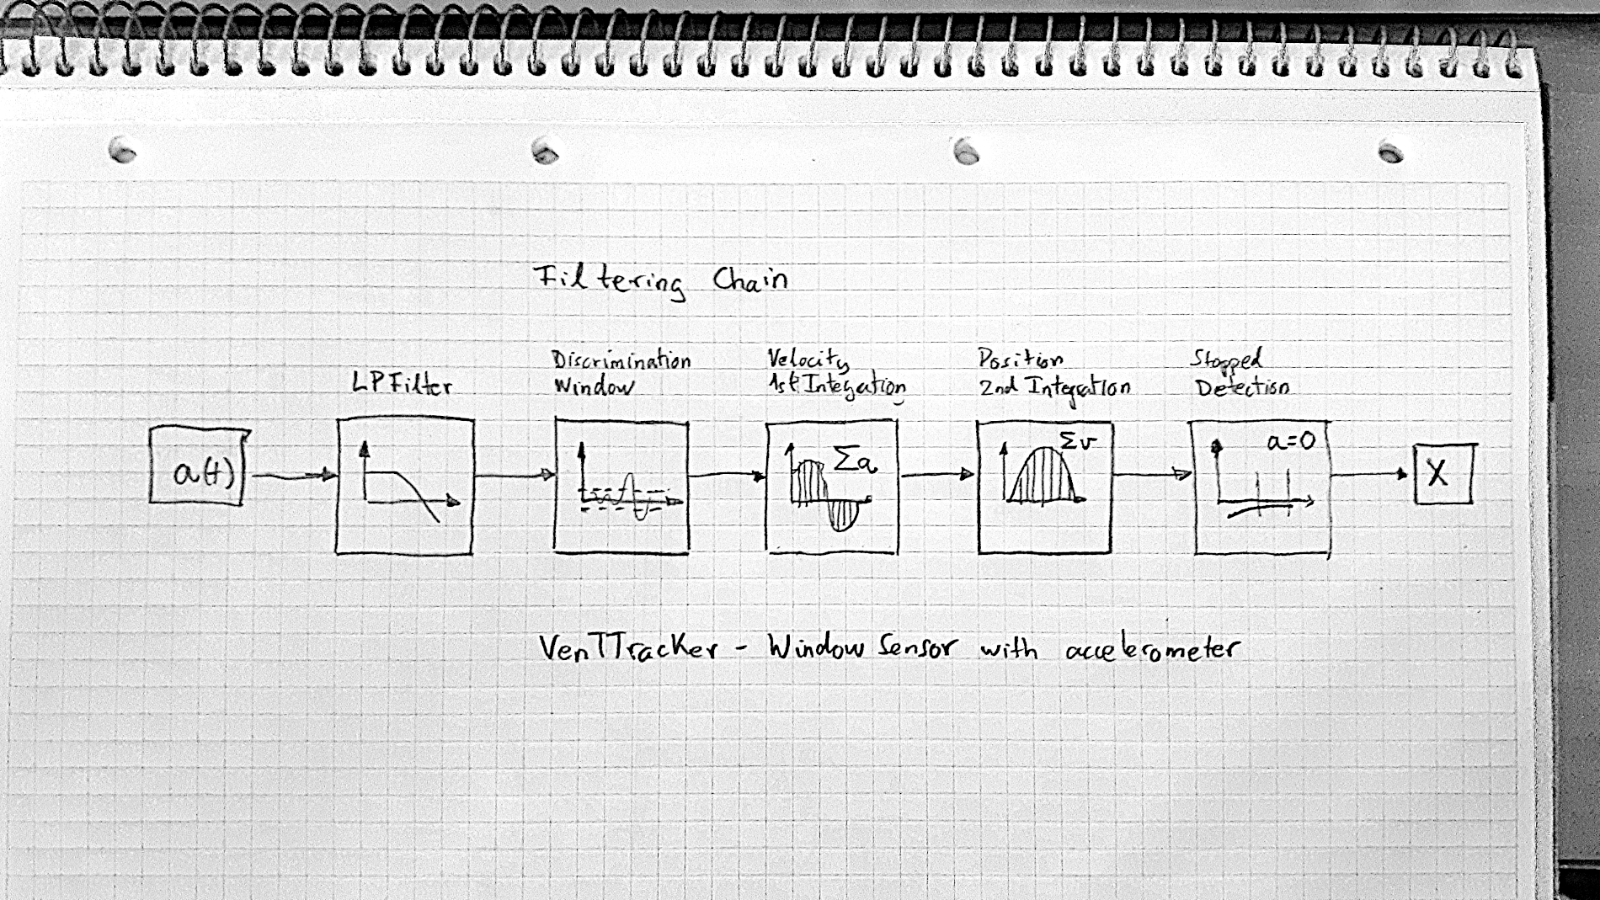 Filtering Chain
LP Filter
Discrimination
Window
Velocity
1st Integration
Position
2nd Integration
Stopped
Detection
a(t)
Σa
Σv
a=0
X
VenTTracker - Window Sensor with accelerometer